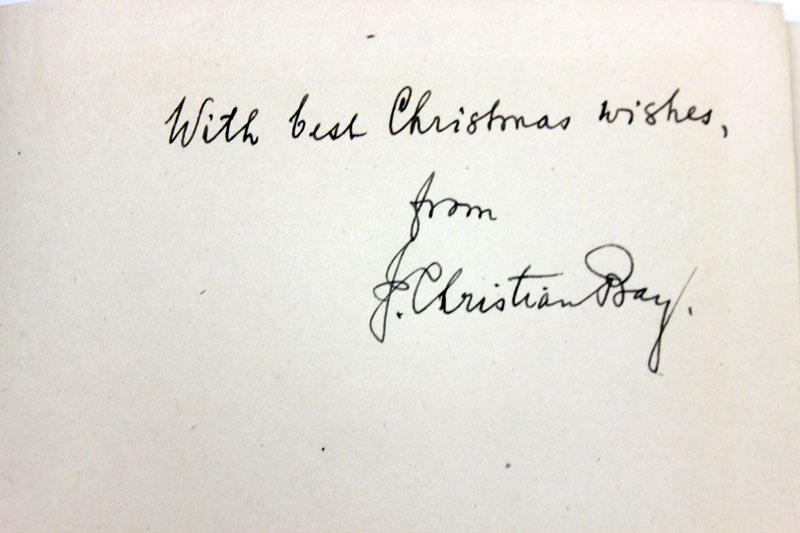 With best Christmas wishes,
from
J. Christian Bay.